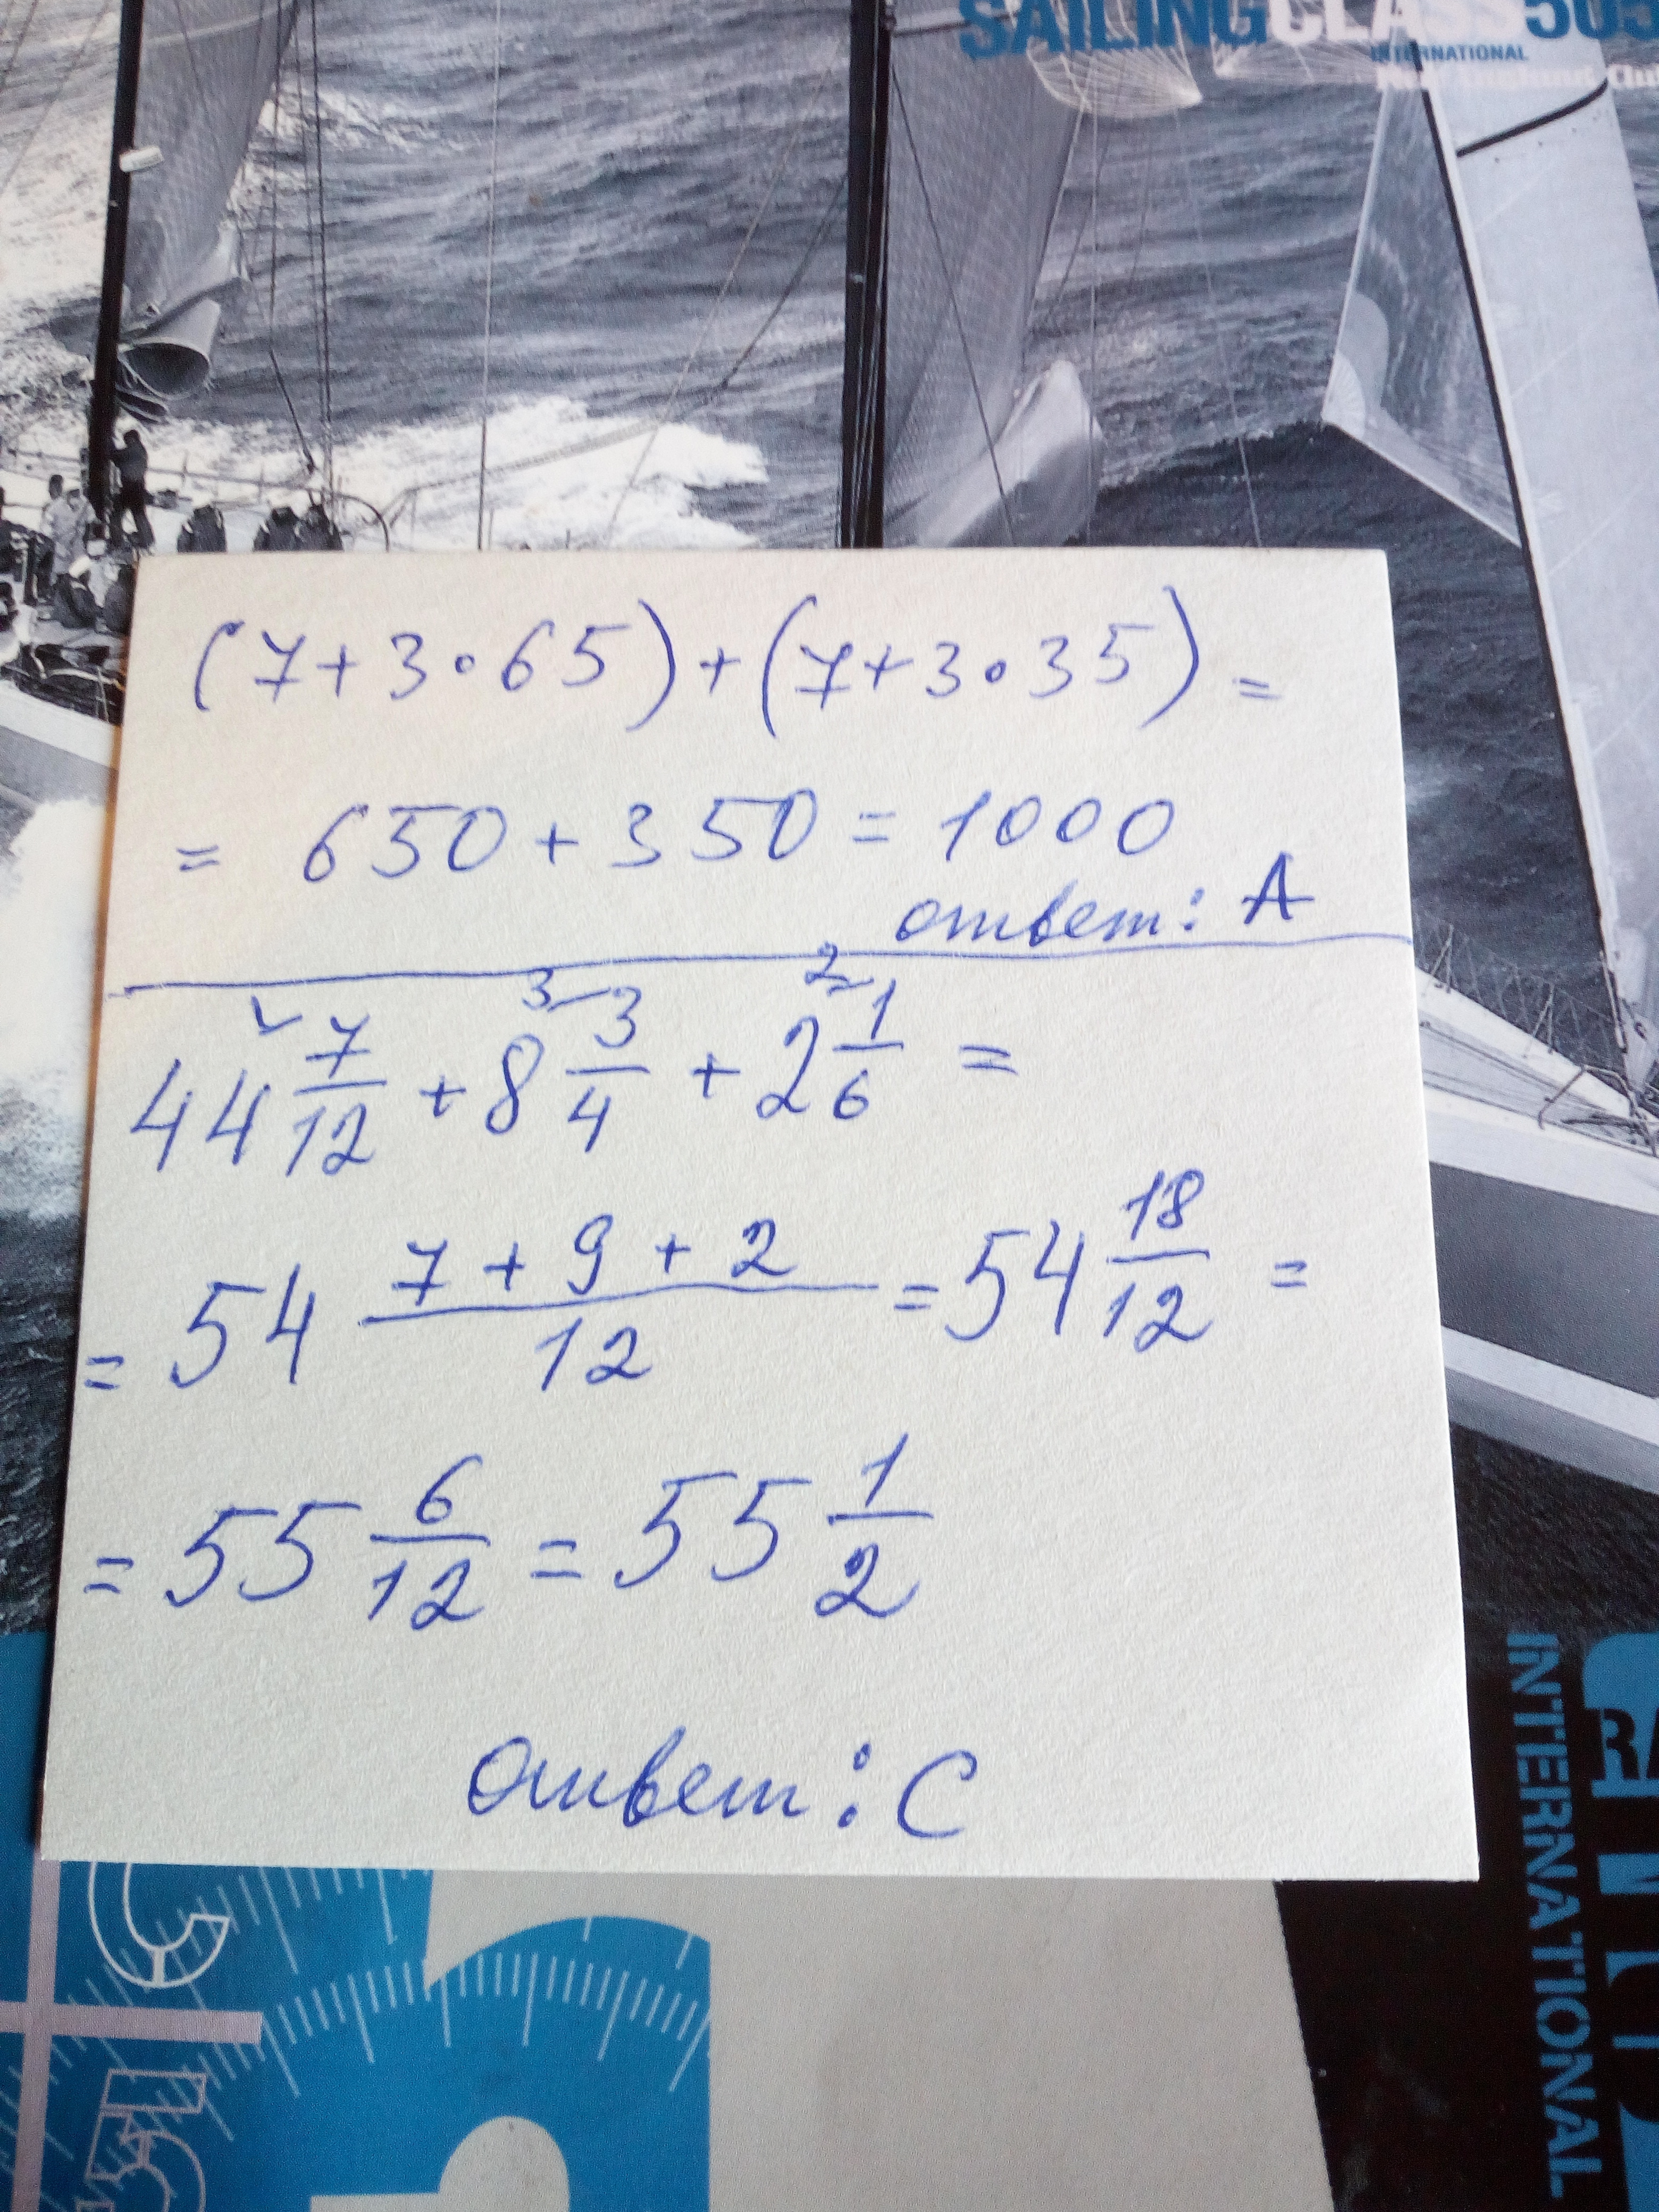 SAILINGCLASS505
INTERNATIONAL
(7+3∘65)+(7+3∘35)=
= 650+350=1000
ответ: A
44 7/12 + 8 3/4 + 2 1/6 =
= 54 (7+9+2)/12 = 54 18/12 =
= 55 6/12 = 55 1/2
ответ: C
INTERNATIONAL
C
5